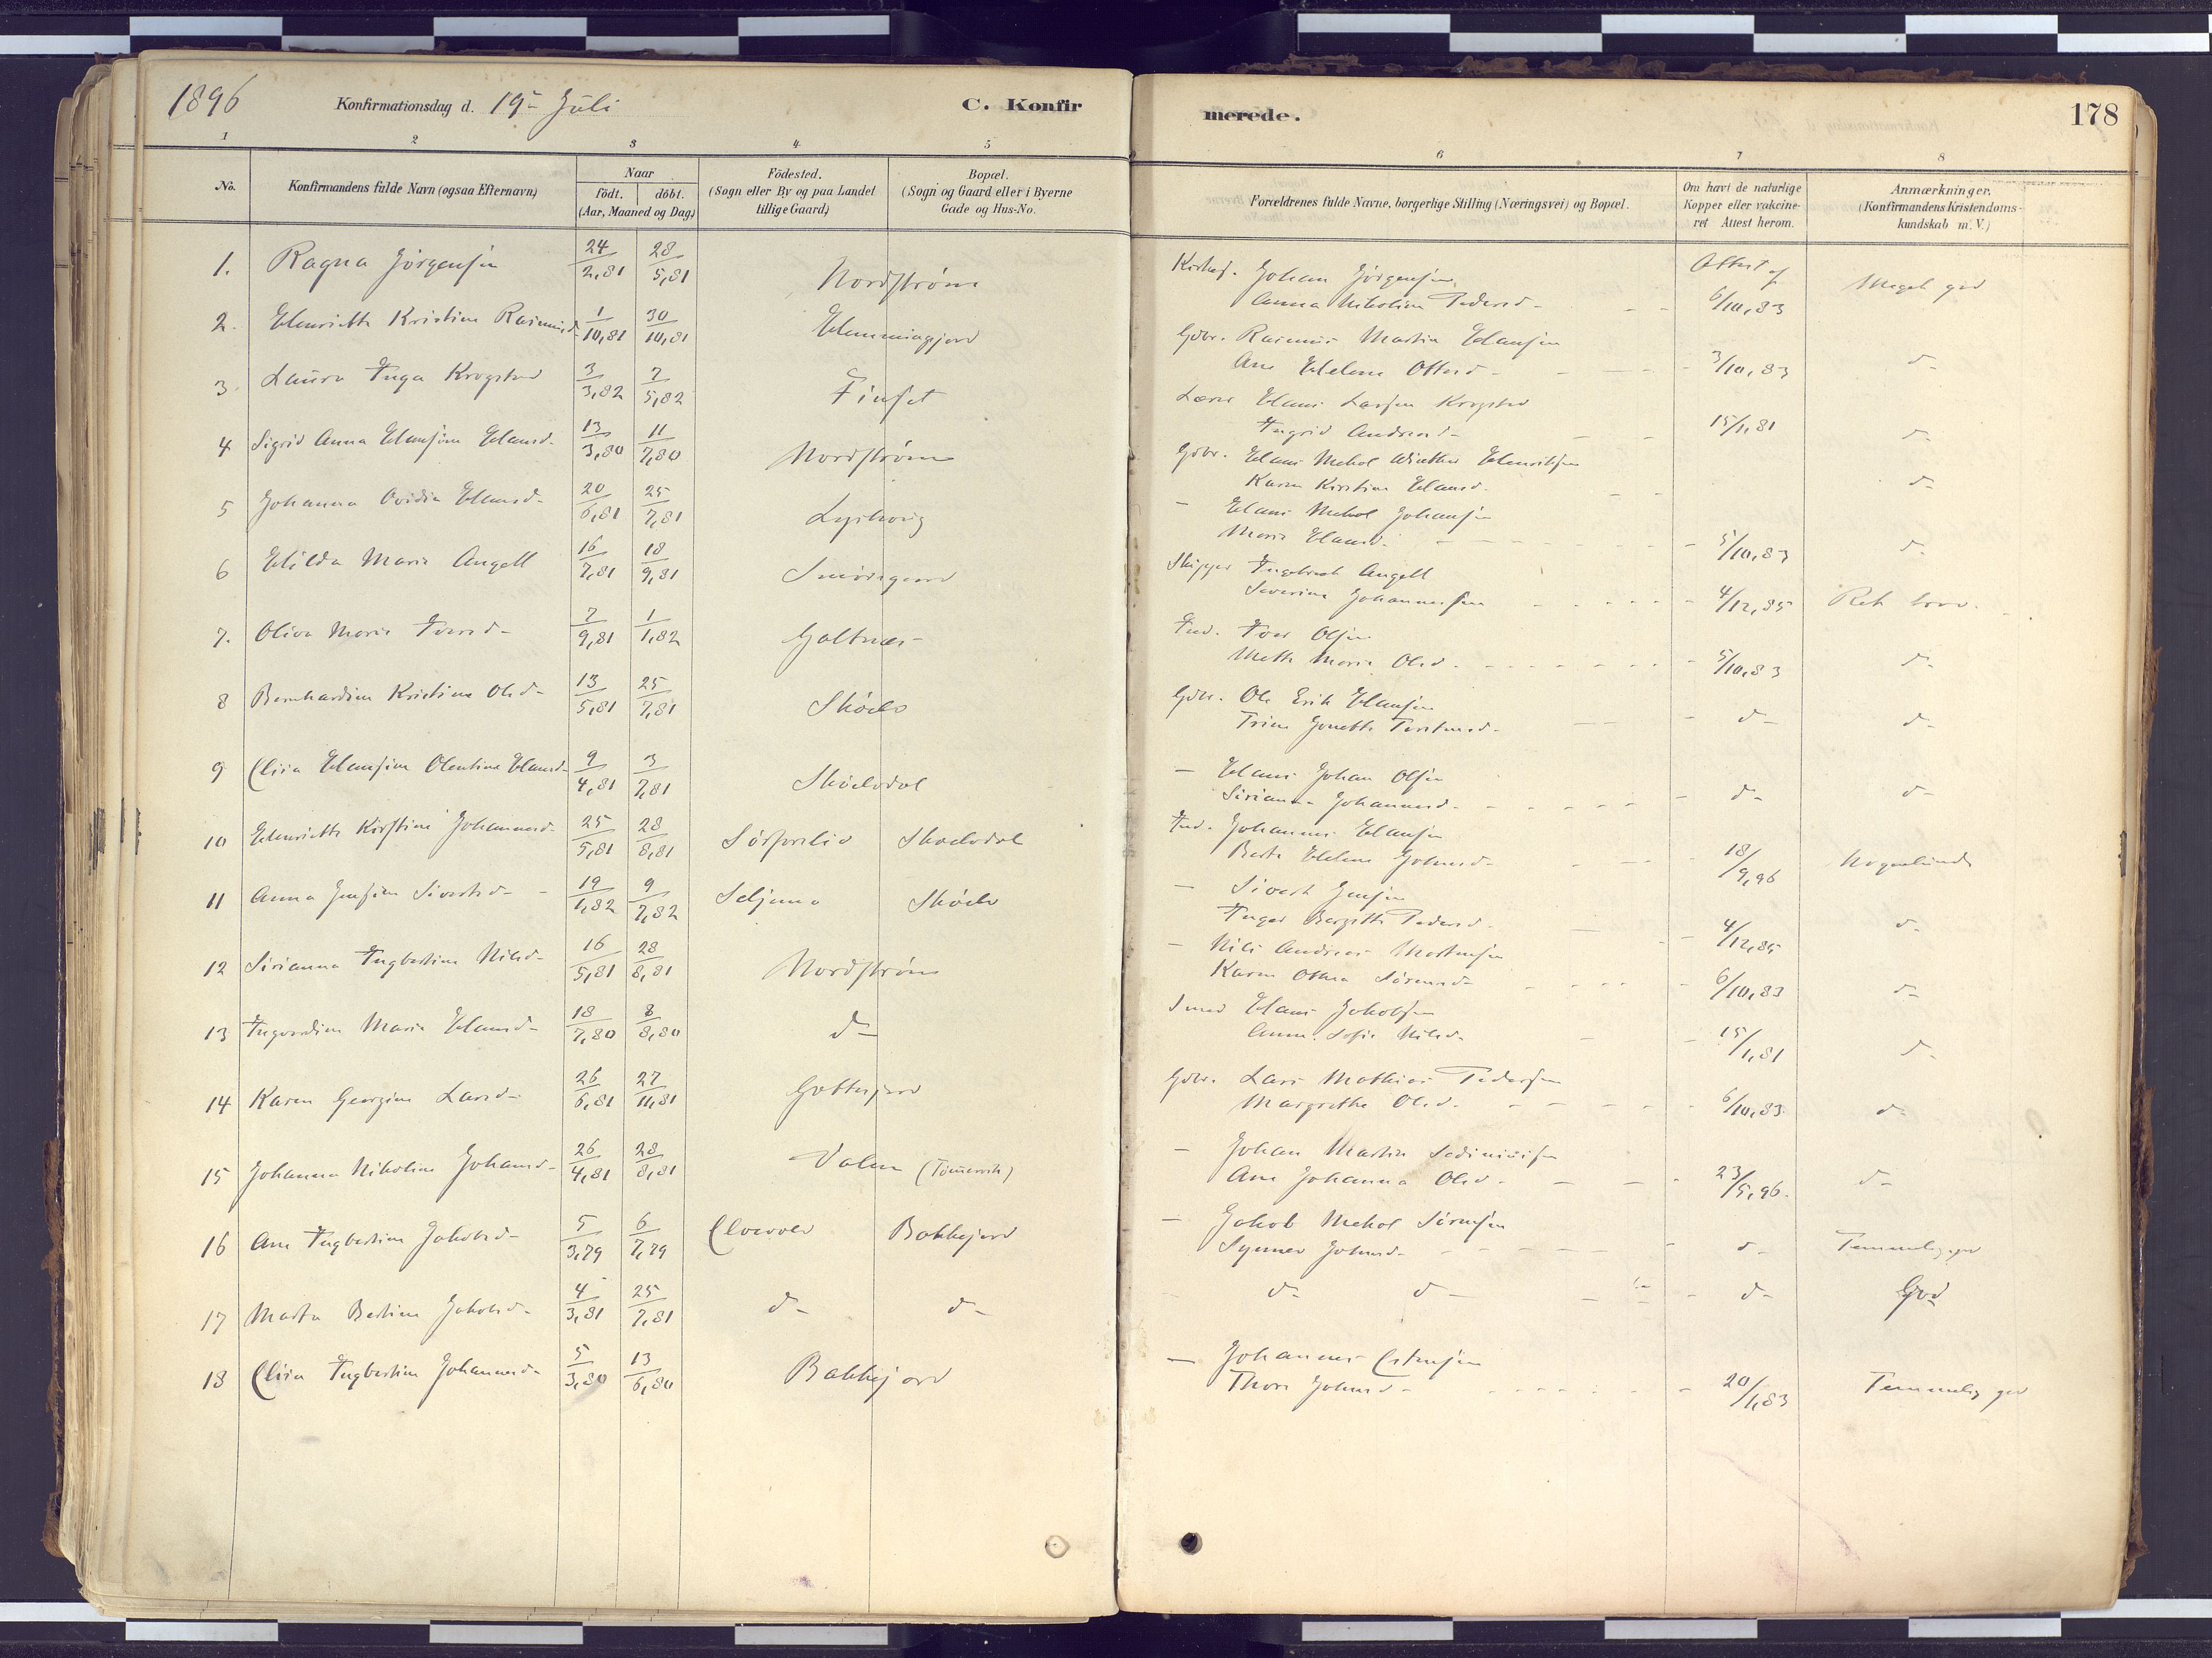 1896 Konfirmationsdag d. 19de Juli C. Konfirmerede. 178
1 2 3 4 5 6 7 8
No. Konfirmandens fulde Navn (ogsaa Efternavn) Naar födt. döbt. (Aar, Maaned og Dag) Födested. (Sogn eller By og paa Landet tillige Gaard) Bopæl. (Sogn og Gaard eller i Byerne Gade og Hus-No. Forældrenes fulde Navne, borgerlige Stilling (Næringsvei) og Bopæl. Om havt de naturlige Kopper eller vakcineret Attest herom. Anmærkninger, (Konfirmandens Kristendomskundskab m. V.)
1. Ragna Jörgensen 24/2,81 28/5,81 Nordstrøm Johan Jörgensen Attest af Meget god
Anna Nikoline Pedersd- 6/10,83
2. Henriette Kristine Rasmusd- 1/10,81 30/10,81 Hemmingjord Gdbr. Rasmus Martin Hansen
Ane Helene Ottesd- 3/10,83 d-
3. Laura Inga Krogstad 3/3,82 7/5,82 Finset Lærer Hans Larsen Krogstad
Ingrid Andreasd- 15/1,81 d-
4 Sigrid Anna Hansine Hansd- 13/3,80 11/7,80 Nordstrøm Gdbr. Hans Mekal Winther Henriksen
Karen Kirstine Hansd- d-
5 Johanna Ovidia Hansd- 20/6,81 25/7,81 Lysbovig - Hans Mekal Johansen
Maria Hansd- 5/10,83 d-
6 Hilda Marie Angell 16/7,81 18/9,81 Smörsgaard Skipper Ingebrigt Angell
Severine Johannesen 4/12,85 Ret brav.
7. Oliva Marie Iversd- 7/9,81 1/1,82 Galtnæs Ind. Iver Olsen
Mette Marie Olsd. 5/10,83 d-
8 Bernhardine Kristine Olsd- 13/5,81 25/7,81 Sköelv Gdbr. Ole Erik Hansen
Trine Jonette d- d-
9 Elisa Hansine Olentine Hansd- 9/4,81 3/7,81 Sköelvdal - Hans Johan Olsen
Sirianna Johannesd- d- d-
10 Henriette Kirstine Johannesd- 25/5,81 28/8,81 Sörforeliv Skoelvdal Ind. Johannes Hansen
Berte Helene Johnsd- 18/9,96 Nogenlunde
11 Anna Jensine Sivertsd- 19/1,82 9/7,82 Seljemo Sköelv - Sivert Jensen
Inger Bergitte Pedersd- 4/12,85 d-
12 Sirianna Ingbertine Nilsd- 16/5,81 28/8,81 Nordstrøm - Nils Andreas Mortensen
Karen Othea Sörensd- 6/10,83 d-
13 Ingvardine Marie Hansd- 18/7,80 8/8,80 d- Smed Hans Jakobsen
Anne Sofie Nilsd- 15/1,81 d-
14 Karen Georgine Larsd- 26/6,81 27/11,81 Gottesjord Gdbr. Lars Mathias Pedersen
Margrethe Olsd- 6/10,83 d-
15 Johanna Nikoline Johansd- 26/4,81 28/8,81 Valen (Tömmervik) - Johan Martin
Ane Johanna Olsd- 23/5,96. d-
16 Ane Ingbertine Jakobsd- 5/3,79 6/7,79 Elvevold Bakkejord - Jakob Mekal Sörensen
Synnev Johnsd- d- Temmelig god
17 Marta Bertine Jakobsd- 4/3,81 25/7,81 d- d- d- d- d- God
18 Elisa Ingbertine Johannesd- 5/3,80 13/6,80 Bakkejord - Johannes Estensen
Thora Johnsd- 20/1,83 Temmelig god